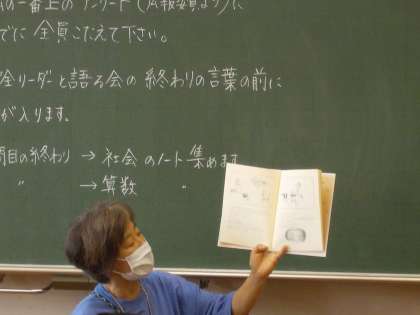 の一番上のアンケート(広報委員より)に
でに 全員こたえて下さい。
全リーダーと語る会の 終わりの言葉の前に
が入ります。
間目の終わり → 社会のノート集めます
〃 → 算数 〃